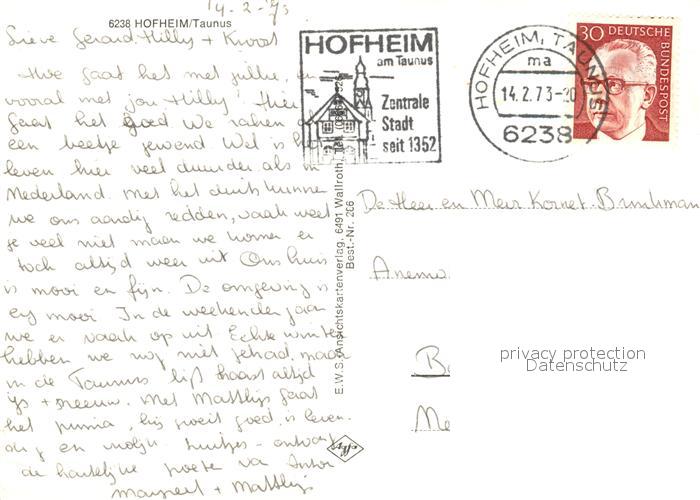 14-2-'73
6238 HOFHEIM/Taunus
Lieve Gerard, Hilly + Knoot
Hoe gaat het met jullie, en
vooral met jou Hilly? Hier
gaat het goed. We raken al
een beetje gewend. Wel is het
leven hier veel duurder als in
Nederland. Met het duits kunnen
we ons aardig redden, vaak weet
je veel niet maar we komen er
toch altijd weer uit. Ons huis
is mooi en fijn. De omgeving is
erg mooi. In de weekenden gaan
we er vaak op uit. Echte winter
hebben we nog niet gehad, maar
in de Taunus ligt haast altijd
ijs + sneeuw. Met Matthijs gaat
het prima, hij groeit goed, is leven-
dig en vrolijk. Luitjes - ontvangt
de hartelijke groeten van Anton
Margreet + Matthijs
HOFHEIM
am Taunus
Zentrale
Stadt
seit 1352
HOFHEIM, TAUNUS
ma
14.2.73-20
6238
30 DEUTSCHE
BUNDESPOST
E.W.S.-Ansichtskartenverlag, 6491 Wallroth, Tel.
Best.-Nr. 266
De Heer en Mevr Kornet-Brinkman
Anemo
B
Me
privacy protection
Datenschutz